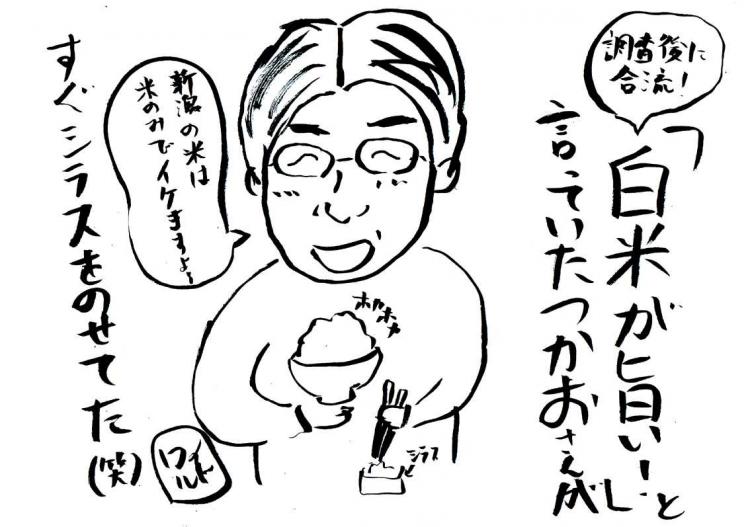 調査後に
合流!
「白米が旨い!」と
言っていたつかおさんが
新潟の米は
米のみでイケますよー
ホカホカ
シラス
すぐシラスをのせてた(笑)
ワイルド